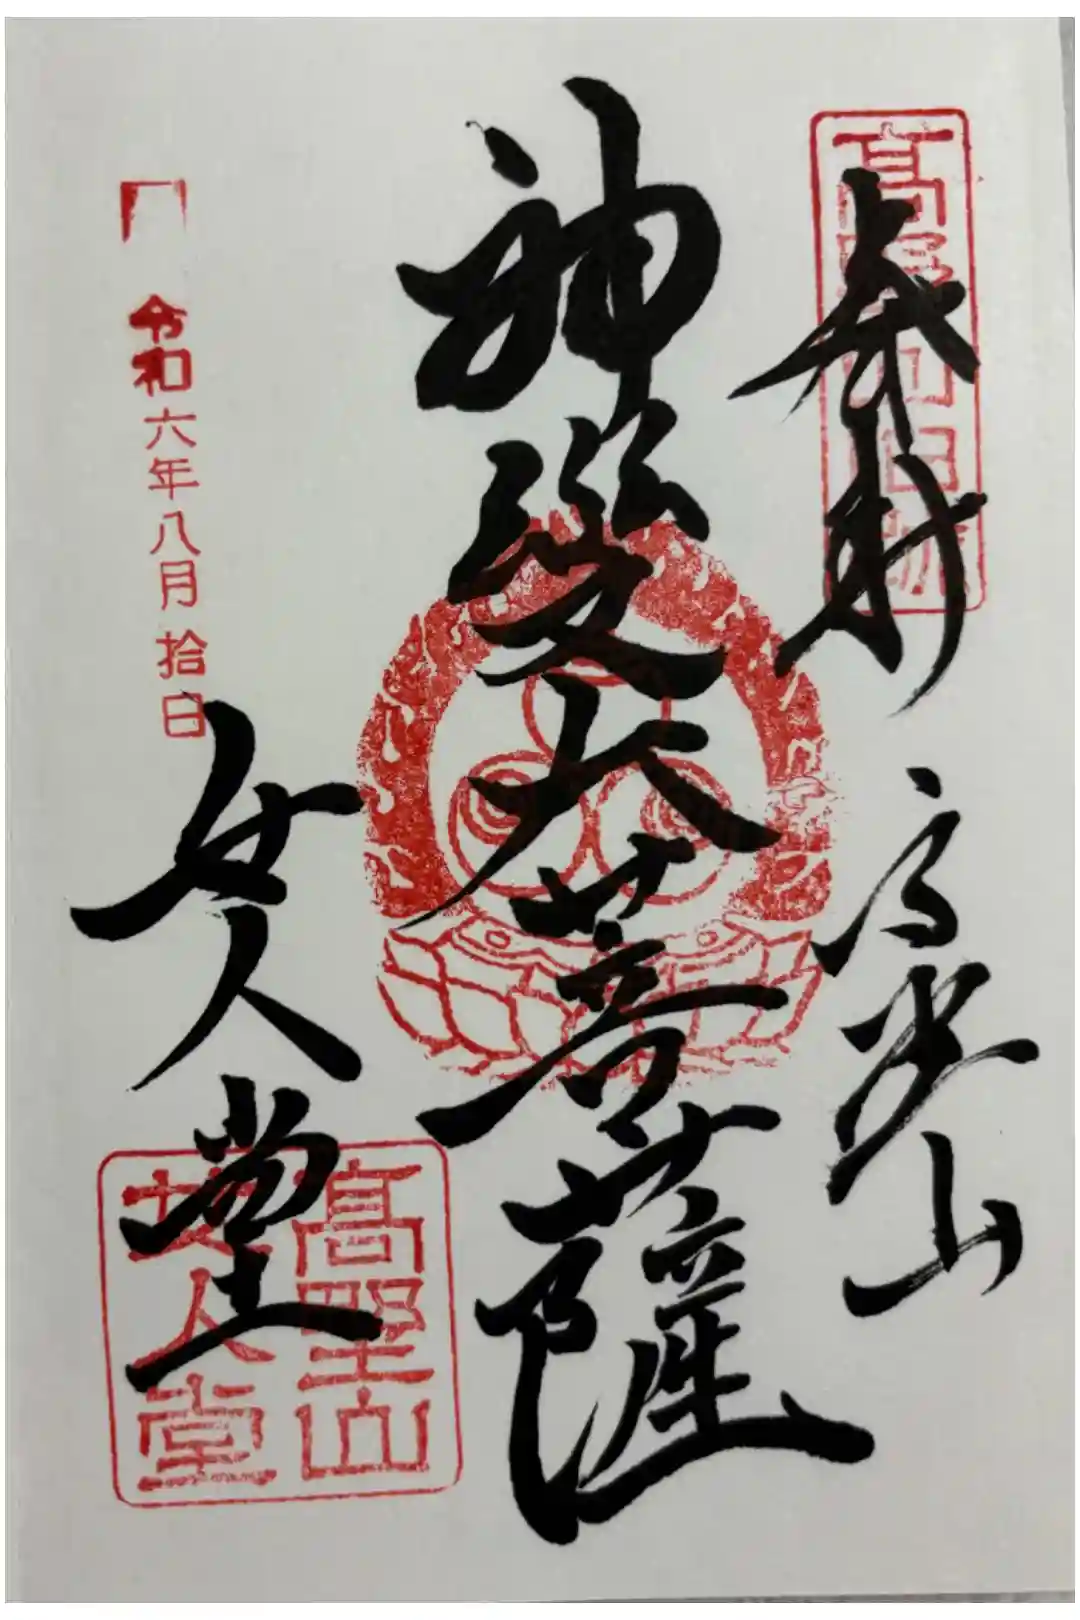 高野山旧跡
奉拝
高野山
神變大菩薩
令和六年八月拾日
女人堂
高野山
女人堂